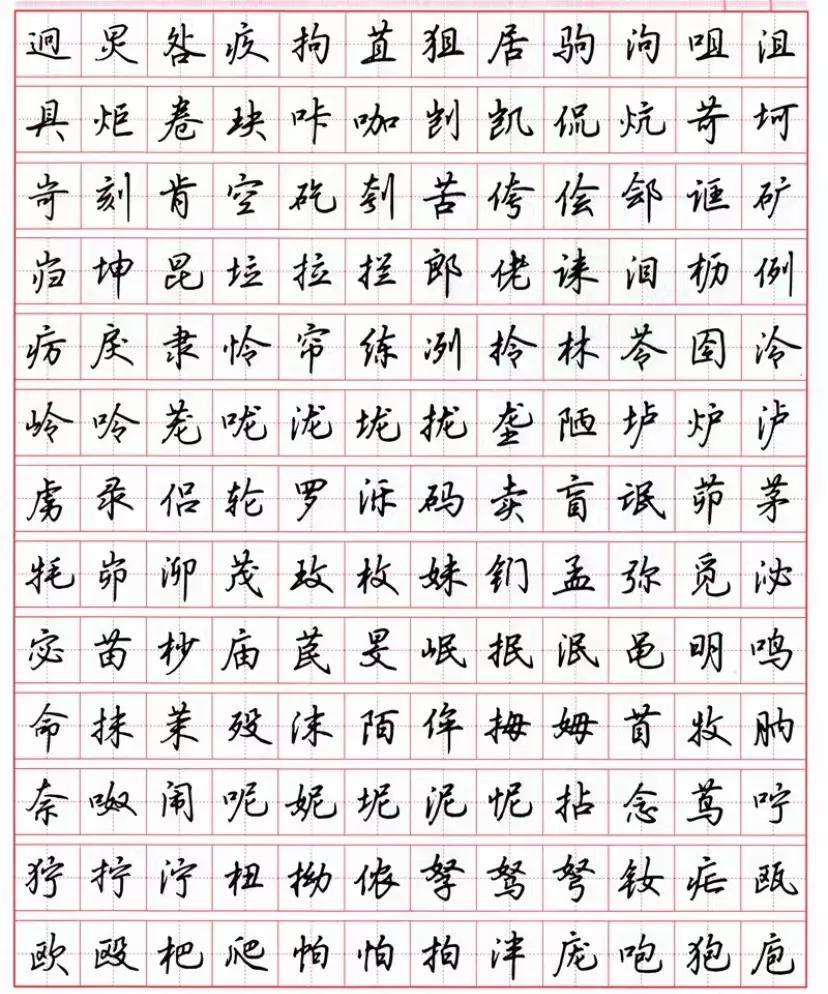 迥炅咎疚拘苴狙居驹泃咀沮
具炬卷玦咔咖剀凯侃炕苛坷
岢刻肯空矻刳苦侉侩郐诓矿
岿坤昆垃拉拦郎佬诔泪枥例
疠戾隶怜帘练冽拎林苓囹泠
岭呤茏咙泷垅拢垄陋垆炉泸
虏录侣轮罗泺码卖盲氓茆茅
牦峁泖茂玫枚妹钔孟弥觅泌
宓苗杪庙苠旻岷抿泯黾明鸣
命抹茉殁沫陌侔拇姆苜牧肭
奈呶闹呢妮坭泥怩拈念茑咛
狞拧泞杻拗侬孥驽弩钕疟瓯
欧殴杷爬怕怕拍泮庞咆狍庖